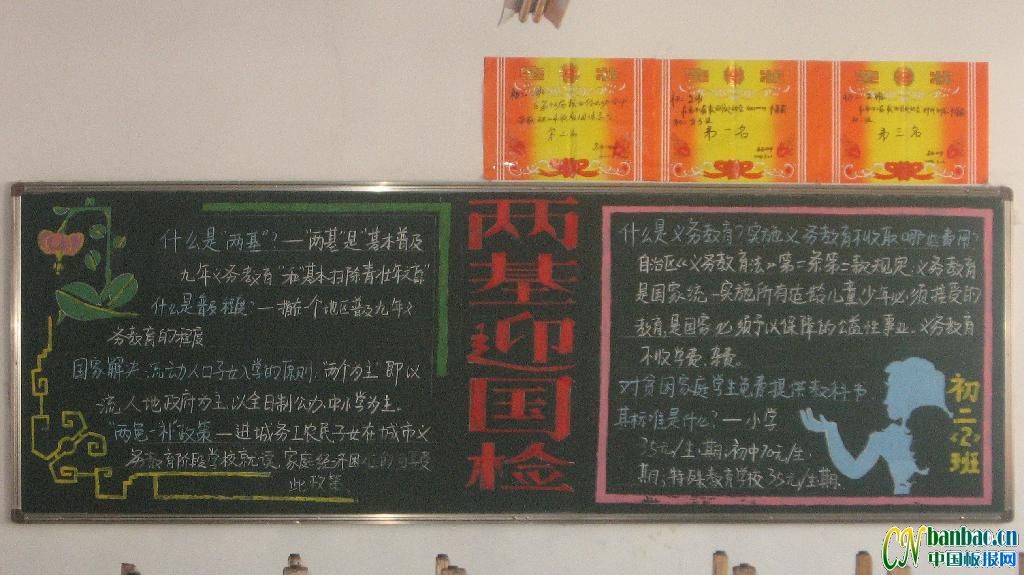 奖状
第二名
奖状
第一名
奖状
第三名
什么是"两基"?—"两基"是"基本普及
九年义务教育"和"基本扫除青壮年文盲"
什么是普及程度?—指在一个地区普及九年义
务教育的程度
国家解决流动人口子女入学的原则"两个为主"即以
流入地政府为主,以全日制公办中小学为主。
"两免一补"政策—进城务工农民子女在城市义
务教育阶段学校就读,家庭经济困难的可享受
此政策
两基迎国检
什么是义务教育?实施义务教育不收取哪些费用?
自治区《义务教育法》第一条第二款规定,义务教育
是国家统一实施所有适龄儿童少年必须接受的
教育,是国家必须予以保障的公益性事业。义务教育
不收学费、杂费。
对贫困家庭学生免费提供教科书
其标准是什么?—小学
35元/生.期,初中70元/生.
期,特殊教育学校35元/生期.
初二②班
CN banbao.cn
中国板报网